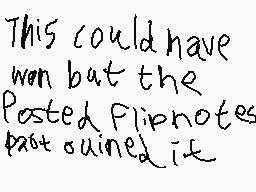 This could have
won but the
Posted Flipnotes
part ouined it